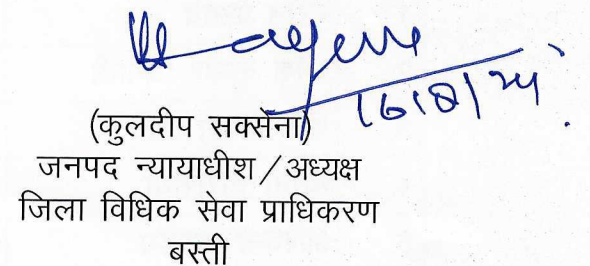 16/8/24
(कुलदीप सक्सेना)
जनपद न्यायाधीश / अध्यक्ष
जिला विधिक सेवा प्राधिकरण
बस्ती